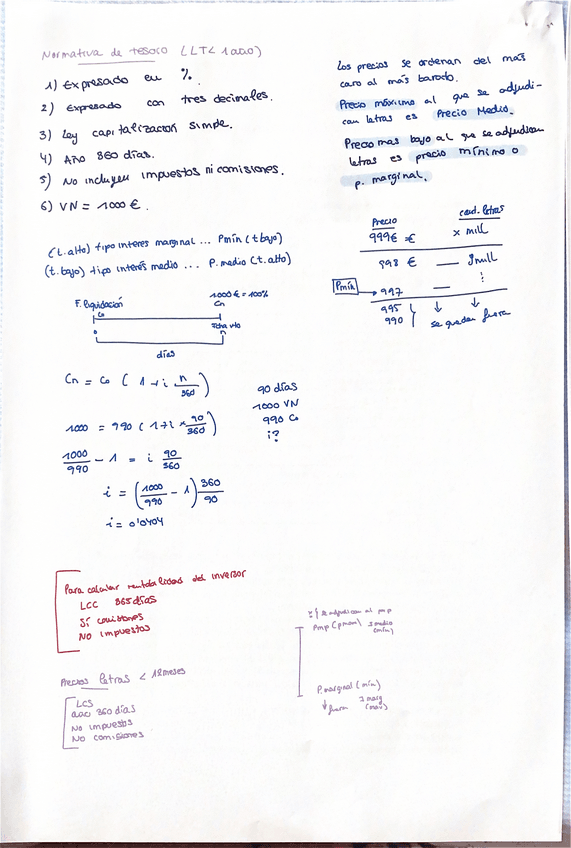 Normativa de tesoro (LT < 1 año)
1) Expresado en %.
2) Expresado con tres decimales.
3) Ley capitalización simple.
4) Año 360 días.
5) No incluyen impuestos ni comisiones.
6) VN = 1000 €.
(t. alto) tipo interes marginal ... Pmín (t bajo)
(t. bajo) tipo interés medio ... P. medio (t. alto)
F. liquidación
1000 € = 100%
Cn
Co
0
fcha vto
n
días
Cn = Co ( 1 + i n/360 )
1000 = 990 ( 1 + i × 90/360 )
1000/990 - 1 = i 90/360
i = ( 1000/990 - 1 ) 360/90
i = 0'0404
90 días
1000 VN
990 Co
i?
Para calcular rentabilidad del inversor
LCC 365 días
Sí comisiones
NO impuestos
Precios letras < 12 meses
LCS
360 días
No impuestos
No comisiones
Los precios se ordenan del más
caro al más barato.
Precio máximo al que se adjudi-
can letras es Precio Medio.
Precio mas bajo al que se adjudican
letras es precio mínimo o
p. marginal.
Precio cant. letras
999€ x mill
998 € — mill
Pmín → 997 —
995
990
se quedan fuera
se adjudican al pmp
Pmp (pmax) medio
(mín)
P. marginal (mín)
↓ fuera marg
(max)